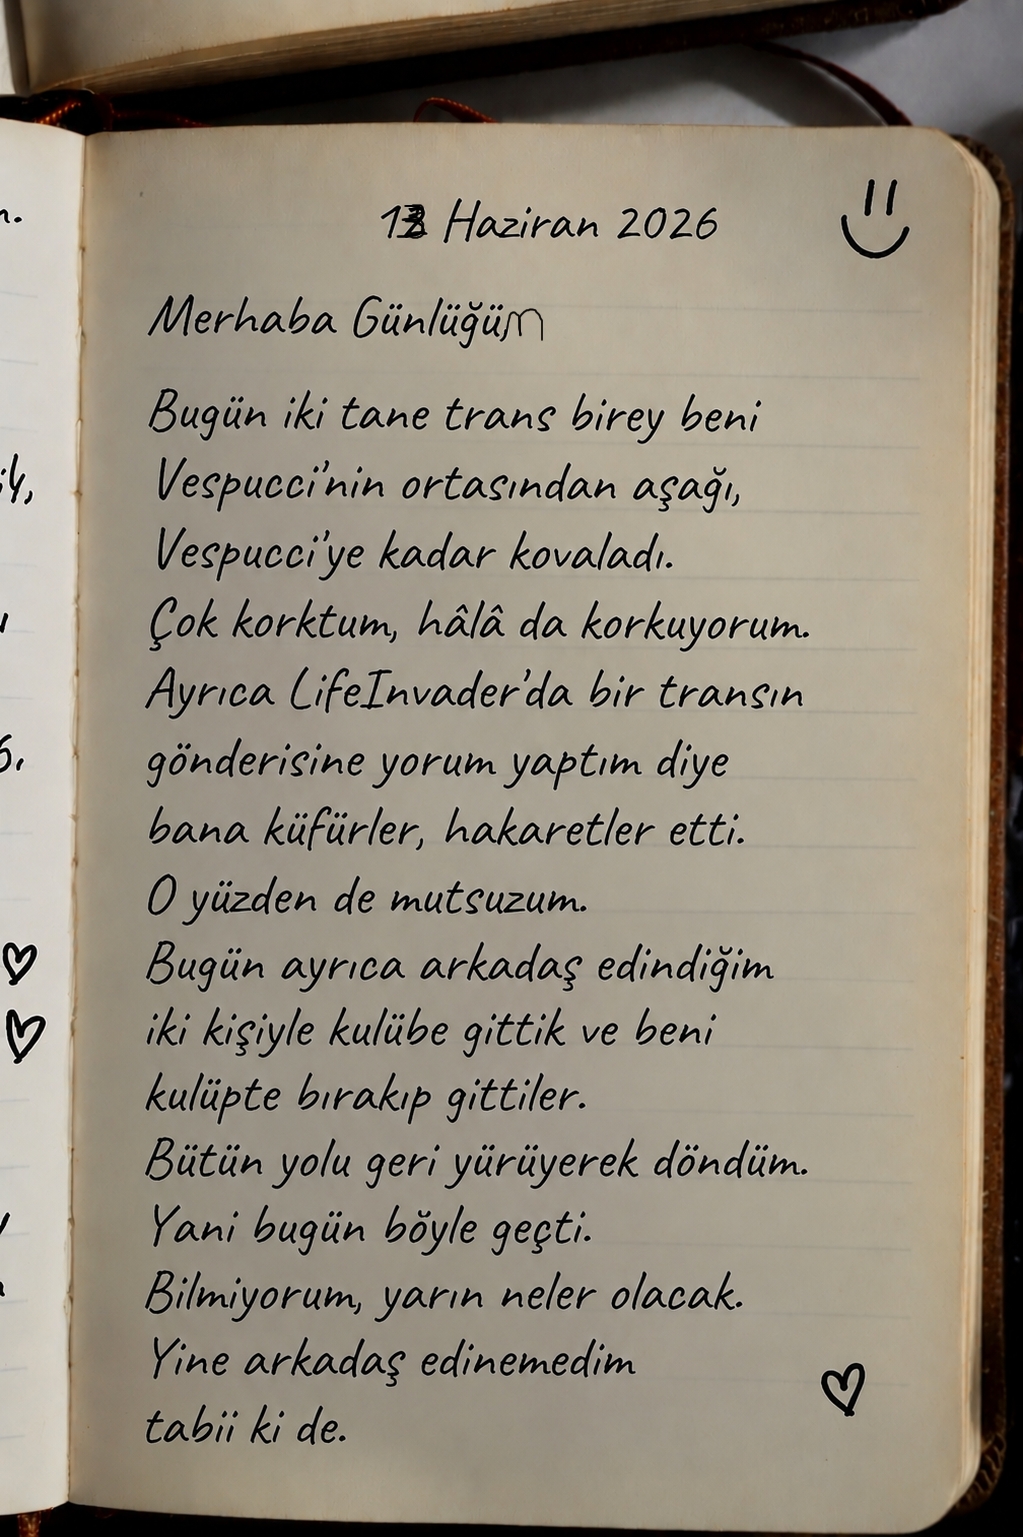 Haziran 2026
Merhaba Günlüğüm
Bugün iki tane trans birey beni
Vespucci'nin ortasından aşağı,
Vespucci'ye kadar kovaladı.
Çok korktum, hâlâ da korkuyorum.
Ayrıca LifeInvader'da bir transın
gönderisine yorum yaptım diye
bana küfürler, hakaretler etti.
O yüzden de mutsuzum.
Bugün ayrıca arkadaş edindiğim
iki kişiyle kulübe gittik ve beni
kulüpte bırakıp gittiler.
Bütün yolu geri yürüyerek döndüm.
Yani bugün böyle geçti.
Bilmiyorum, yarın neler olacak.
Yine arkadaş edinemedim
tabii ki de.